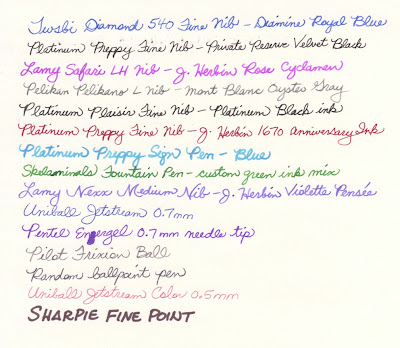 Twsbi Diamond 540 Fine Nib - Diamine Royal Blue
Platinum Preppy Fine Nib - Private Reserve Velvet Black
Lamy Safari LH Nib - J. Herbin Rose Cyclamen
Pelikan Pelikano L Nib - Mont Blanc Oyster Gray
Platinum Plaisir Fine Nib - Platinum Black ink
Platinum Preppy Fine Nib - J. Herbin 1670 Anniversary Ink
Platinum Preppy Sign Pen - Blue
Skelaminals Fountain Pen - custom green ink mix
Lamy Nexx Medium Nib - J. Herbin Violette Pensée
Uniball Jetstream 0.7mm
Pentel Energel 0.7mm needle tip
Pilot Frixion Ball
Random ballpoint pen
Uniball Jetstream Color 0.5mm
SHARPIE FINE POINT